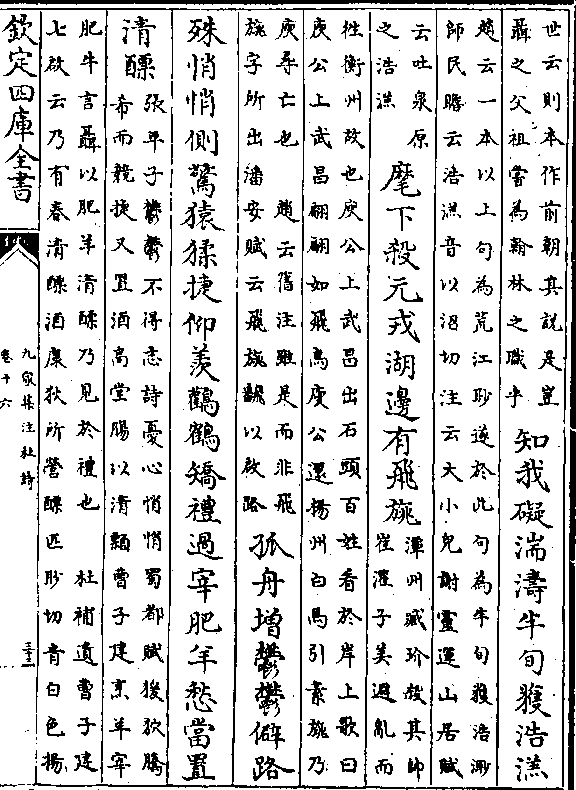 世云則本作前朝其說是豈
聶之父祖嘗為翰林之職乎
知我礙湍濤半旬獲浩溔
趙云一本以上句為荒江眇遂於此句為半旬獲浩渺
師民瞻云浩溔音以沼切注云大小皃謝靈運山居賦
云吐泉原
之浩溔
麾下殺元戎湖邊有飛旐
潭州臧玠殺其帥
崔瓘子美避亂而
往衡州故也庾公上武昌出石頭百姓看於岸上歌曰
庾公上武昌翩翩如飛鳥庾公還揚州白馬引素旐乃
庾尋亡也 趙云舊注雖是而非飛
旐字所出潘安賦云飛旐翩以啟路
孤舟増鬱鬱僻路
殊悄悄側驚猿猱捷仰羨鸛鶴矯禮過宰肥羊愁當置
清醥
張平子鬱鬱不得志詩憂心悄悄蜀都賦猨狖騰
希而競捷又置酒高堂觴以清醥曹子建烹羊宰
肥牛言聶以肥羊清醥乃見於禮也 杜補遺曹子建
七啟云乃有春清醥酒康狄所營醥匹眇切青白色揚
欽定四庫全書
九家集注杜詩
卷十六
三十三